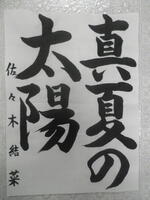 真夏の
太陽
佐々木結菜